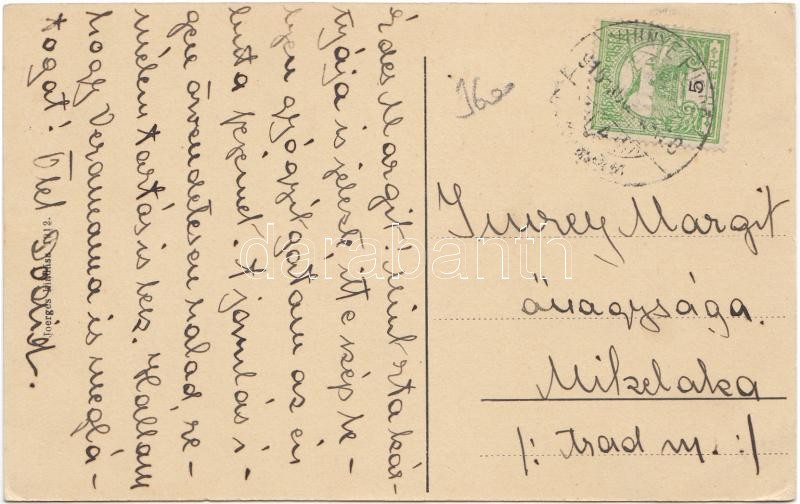 Édes Margit! Mint rta kár-
tyája is jelezte itt e szép he-
lyen gyógyitgatom az én
buta fejemet. A jamlás i-
gen örvendetesen halad re-
mélem tartás is lesz. Hallom
hogy Veramama is meglá-
togat! Ölel Bödid.
Joerges
1912.
Imrey Margit
őnagysága.
Mikelaka
/: Arad m. :/
5
darabanth